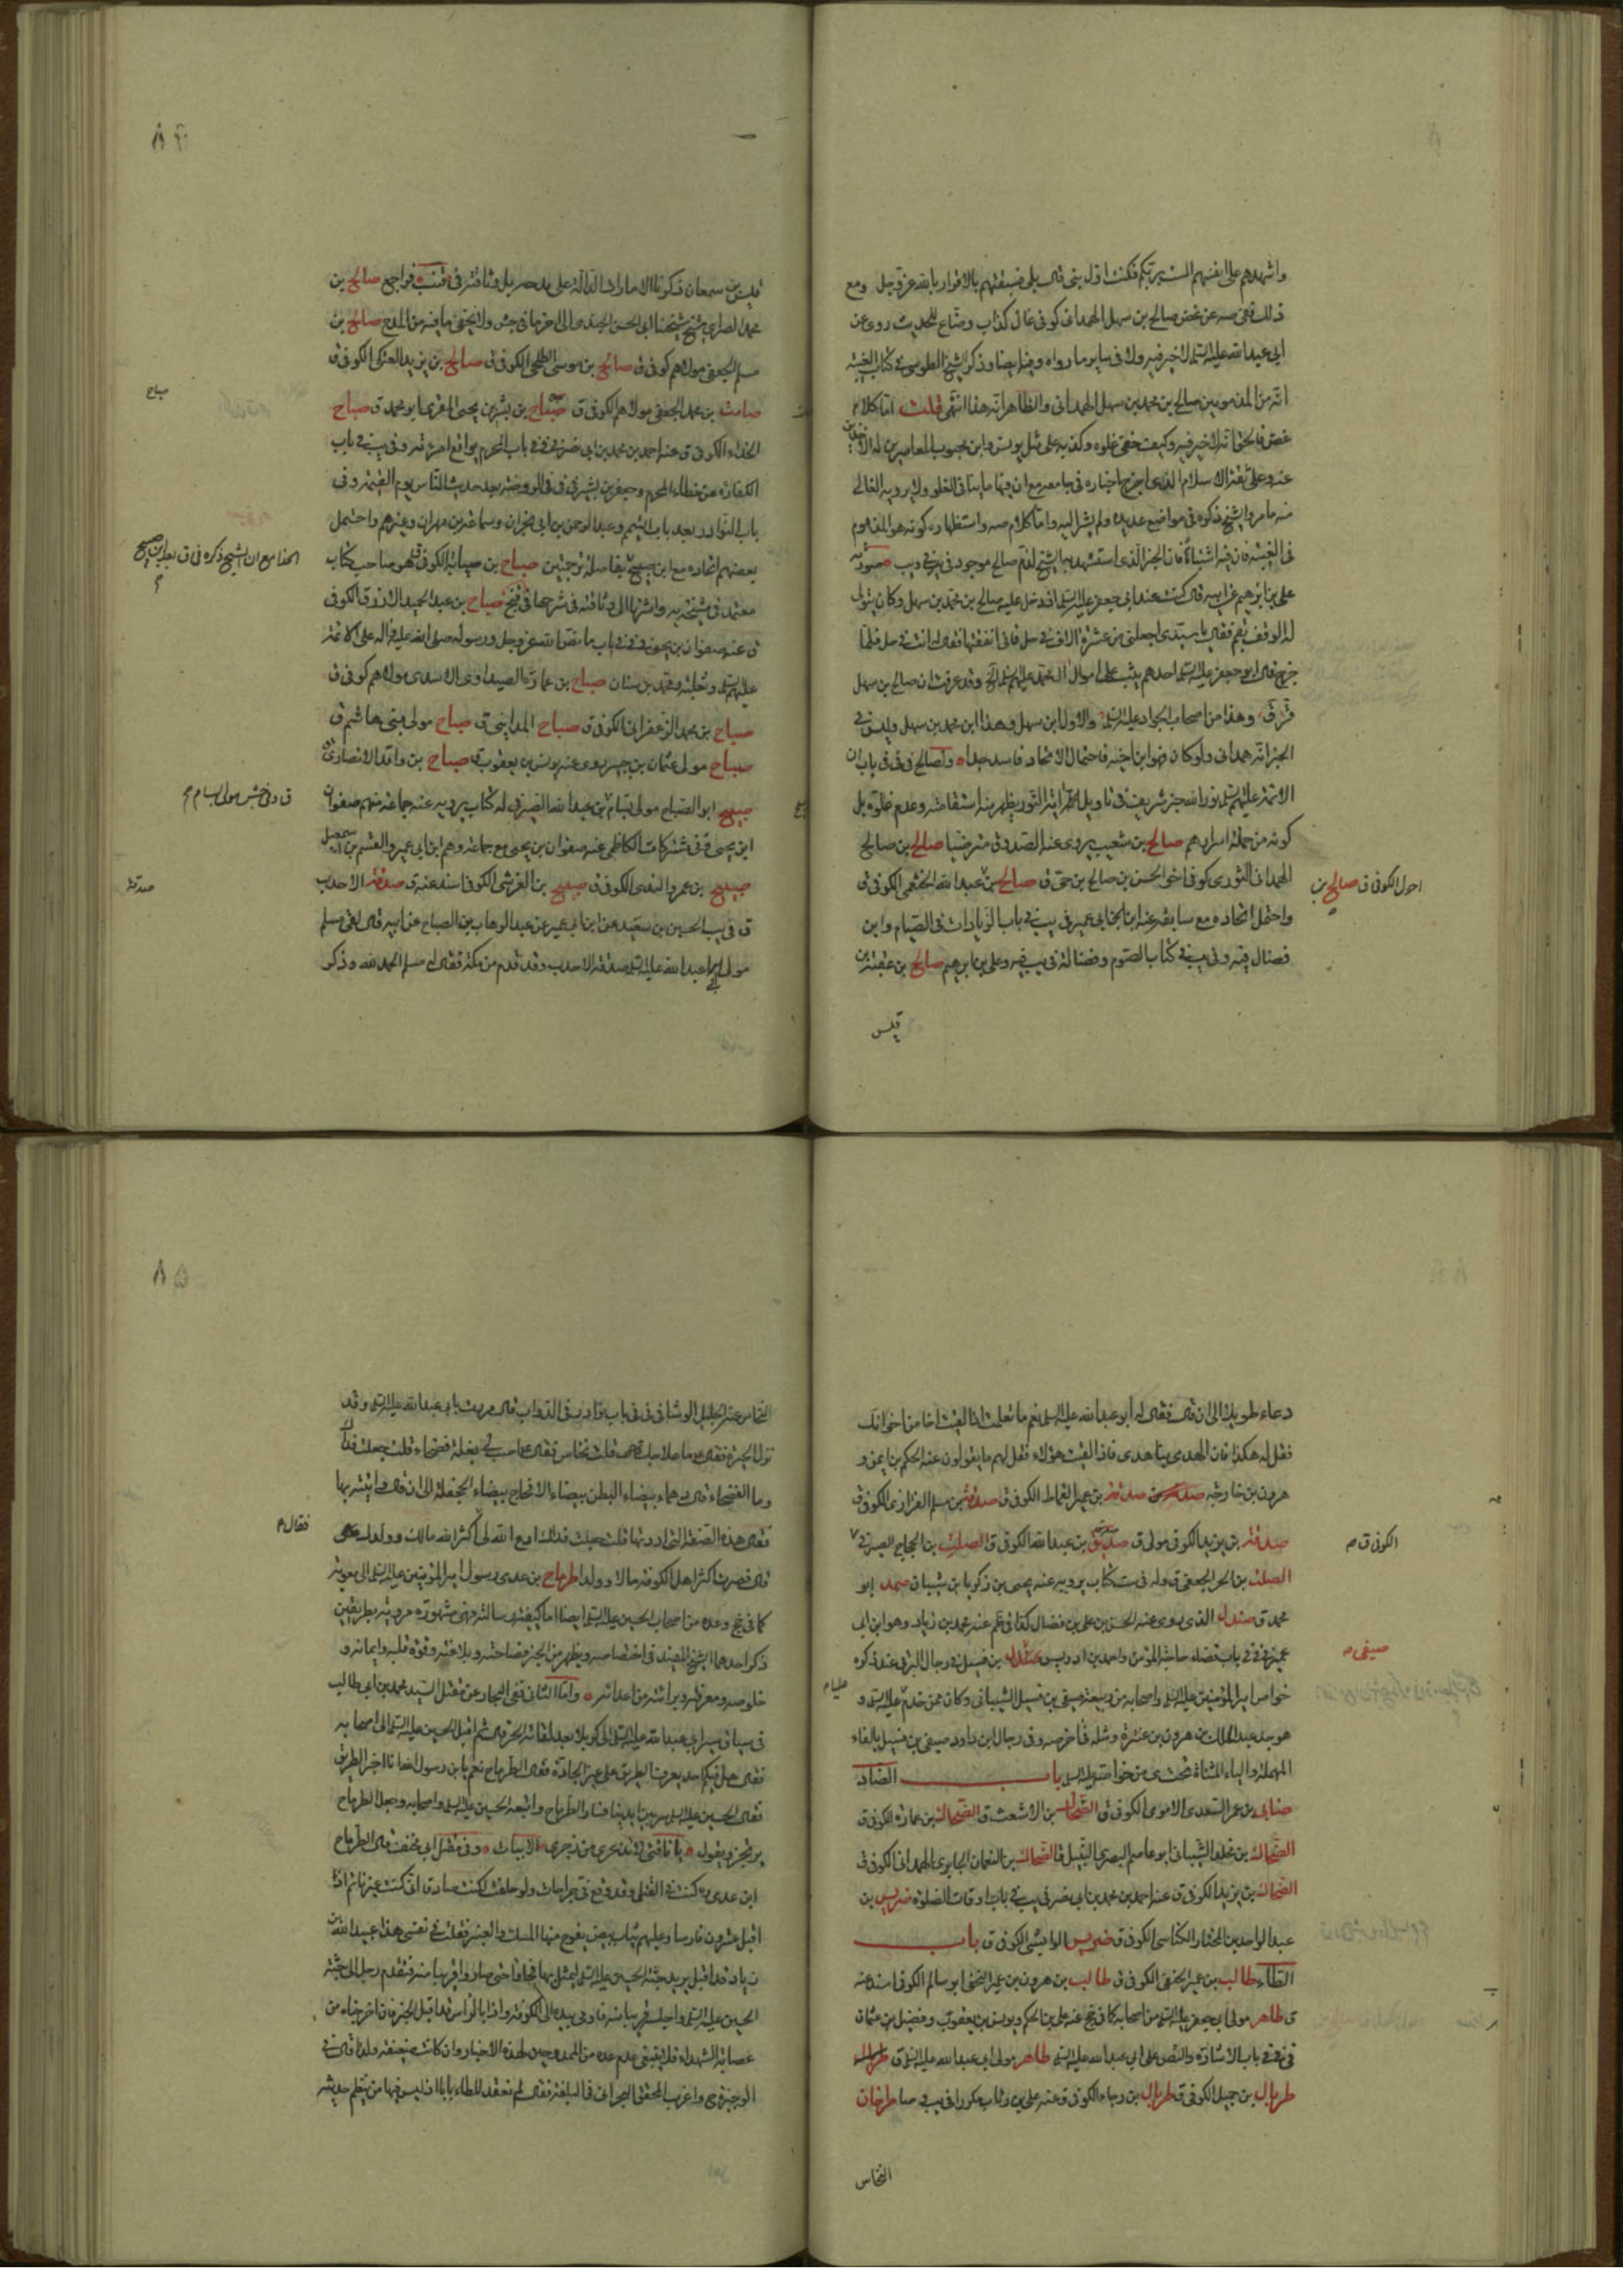 واشهدهم على انفسهم الست بربكم فكنت اول نبي قال بلى فسبقتهم بالاقرار بالله عز وجل ومع
ذلك ففي صه عن غض صالح بن سهل الهمداني كوفي غال كذاب وضاع للحديث روى عن
ابي عبد الله عليه السلم لا خير فيه ولا في ساير ما رواه وفيها ايضا وذكر الشيخ الطوسي في كتاب الغيبة
انه من المذمومين صالح بن محمد بن سهل الهمداني والظاهر انه هذا انتهى قلت اما كلام
غض فالحق انه لا خير فيه وكيف خفي غلوه وكذبه على مثل يونس وابن محبوب المعاصرين له
عنه وعلى ثقة الاسلام الذي اخرج اخباره في جامعه مع ان فيها ما ينافي الغلو ولا يرويه الغالي
منه ما مر والشيخ ذكره في مواضع عديدة ولم يشر اليه واما كلام صه واستظهاره كونه هو المذموم
في الغيبة فان فيه اشتباها فان الخبر الذي استشهد به الشيخ لذم صالح موجود في يب صورته
علي بن ابرهيم عن ابيه قال كنت عند ابي جعفر عليه السلم اذ دخل عليه صالح بن محمد بن سهل وكان يتولى
له الوقف بقم فقال يا سيدي اجعلني من عشرة الاف في حل فاني انفقتها فقال له انت في حل فلما
خرج قال ابو جعفر عليه السلم احدهم يثب على اموال آل محمد عليهم السلم الخ وقد عرفت ان صالح بن سهل
قر ق وهذا من اصحاب الجواد عليه السلم والاول ابن سهل وهذا ابن محمد بن سهل وليس في
الخبر انه همداني ولو كان فهو ابن اخيه فاحتمال الاتحاد فاسد جدا ولصالح في في في باب ان
الائمة عليهم السلم نور الله خبر شريف في تاويل آية النور يظهر منه استقامته وعدم غلوه بل
كونه من حملة اسرارهم صالح بن شعيب يروي عنه الصدوق مترضيا صالح بن صالح
الهمداني الثوري كوفي اخو الحسن بن صالح بن حي ق صالح بن عبد الله الخثعمي الكوفي ق
احول الكوفي ق صالح بن
واحتمل اتحاده مع سابقه عنه ابن ابي عمير في يب في باب الزيادات في الصيام وابن
فضال فيه وفي يب في كتاب الصوم وفضالة في يب فيه وعلي بن ابرهيم صالح بن عقبة بن
قيس
قيس بن سمعان ذكرنا الامارات الدالة على مدحه بل وثاقته في فراجع صالح بن
محمد الصرامي شيخ شيخنا ابي الحسن الجندي الى اخر ما في جش ولا يخفى ما فيه من المدح صالح بن
مسلم الجعفي مولاهم كوفي ق صالح بن موسى الطلحي الكوفي ق صالح بن يزيد العتكي الكوفي ق
صباح
صامت بن محمد الجعفي مولاهم الكوفي ق صباح بن بشر بن يحيى المقري ابو محمد ق صباح
الحذاء الكوفي ق عنه احمد بن محمد بن ابي نصر في في في باب المحرم يواقع امرءته وفي يب في باب
الكفارة عن خطاء المحرم وجعفر بن بشير في في في الروضة بعد حديث الناس يوم القيمة وفي
باب النوادر بعد باب اليتيم وعبد الرحمن بن ابي نجران وسماعة بن مهران وغيرهم واحتمل
بعضهم اتحاده مع ابن صبيح صباح بن سيابة الكوفي ق هو صاحب كتاب
الحذا مع ان الشيخ ذكره في ق بعد ابن صبيح
معتمد في مشيخة يه واشرنا الى وثاقته في شرحها في فتح صباح بن عبد الحميد الازرق الكوفي
ق عنه صفوان بن يحيى في في في باب ما نص الله عز وجل ورسوله صلى الله عليه واله على الائمة
عليهم السلم وثعلبة ومحمد بن سنان صباح بن عمارة الصيداوي الاسدي مولاهم كوفي ق
صباح بن محمد الزعفراني الكوفي ق صباح المدايني ق صباح مولى بني هاشم ق
صباح مولى عثمان بن جبير يروي عنه يونس بن يعقوب ق صباح بن واقد الانصاري ق
صبيح ابو الصباح مولى بسام بن عبد الله الصيرفي له كتاب يرويه عنه جماعة منهم صفوان
ق وفي جش مولى بسام
ابن يحيى ق في مشتركات الكاظمي عنه صفوان بن يحيى مع جماعة وهم ابن ابي عمير والقسم بن اسمعيل
صبيح بن عمرو النهدي الكوفي ق صبيح بن القرشي الكوفي اسند عنه ق صدقة الاحدب
صدقة
ق في يب الحسين بن سعيد عن ابن ابي عمير عن عبد الوهاب بن الصباح عن ابيه قال لقي مسلم
مولى ابي عبد الله عليه السلم صدقة الاحدب وقد قدم من مكة فقال له مسلم الحمد لله وذكر
دعاء طويلا الى ان قال فقال له ابو عبد الله عليه السلم نعم ما تعلمت اذا لقيت اخا من اخوانك
فقل له هكذا فان الهدى بنا هدى فاذا لقيت هؤلاء فقل لهم ما يقولون عنه الحكم بن ايمن و
هرون بن خارجة صدقة بن عمير القماط الكوفي ق صدقة بن مسلم الفزاري الكوفي ق
صدقة بن يزيد الكوفي مولى ق صديق بن عبد الله الكوفي ق الصلت بن الحجاج الصيرفي
الكوفي ق
الصلت بن الحر الجعفي ق وله في ست كتاب يرويه عنه يحيى بن زكريا بن شيبان صمد ابو
محمد ق صندل الذي روى عنه الحسن بن علي بن فضال كذا في لم عنه محمد بن زياد وهو ابن ابي
عمير في في في باب قضاء حاجة المؤمن واحمد بن ادريس بن فسيل في رجال البرقي عند ذكره
صيفي
خواص امير المؤمنين عليه السلم واصحابه من ربيعة صيفي بن فسيل الشيباني وكان ممن خدم عليه السلم و
هو جد عبد الملك بن هرون بن عنترة ومثله في اخر صه وفي رجال ابن داود صيفي بن فسيل بالفاء
المهملة والياء المثناة تحت ي من خواصه عليه السلم باب الضاد
ضنابي بن عمر السعدي الاموي الكوفي ق الضحاك بن الاشعث ق الضحاك بن عمارة الكوفي ق
الضحاك بن مخلد الشيباني ابو عاصم البصري النبيل ق الضحاك بن النعمان الجابري الهمداني الكوفي ق
الضحاك بن يزيد الكوفي ق عنه احمد بن محمد بن ابي نصر في يب في باب اوقات الصلوة ضريس بن
عبد الواحد بن المختار الكناسي الكوفي ق ضريس الوابشي الكوفي ق باب
الطاء طالب بن عمير الحنفي الكوفي ق طالب بن هرون بن عمير النخعي ابو سالم الكوفي اسند عنه
ق طاهر مولى ابي جعفر عليه السلم من اصحابه كما في جخ عنه علي بن الحكم ويونس بن يعقوب وفضيل بن عثمان
في في في باب الاشارة والنص على ابي عبد الله عليه السلم طاهر مولى ابي عبد الله عليه السلم ق
طربال بن جميل الكوفي ق طربال بن رجاء الكوفي ق وعنه علي بن رئاب مكررا في يب في صا طرخان
النخاس
النخاس عنه الجليل الوشا في في في باب نوادر في الدواب قال مررت بابي عبد الله عليه السلم وقد
نزل الحيرة فقال ما علاجك قلت نخاس فقال اصب لي بغلة فضحاء قلت جعلت فداك
وما الفضحاء قال دهماء بيضاء البطن بيضاء الافحاج بيضاء الجحفلة الى ان قال واتيته بها
فقال هذه الصفة التي اردتها قلت جعلت فداك ادع الله لي اكثر الله مالك وولدك
فقال
قال فصرت اكثر اهل الكوفة مالا وولدا طرماح بن عدي رسول امير المؤمنين عليه السلم الى معوية
كما في جخ وعده من اصحاب الحسين عليه السلم ايضا اما كيفية رسالته فهي مشهورة مروية بطريقين
ذكر احدهما الشيخ المفيد في اختصاصه ويظهر من الخبر فصاحته وبلاغته وقوة قلبه وايمانه و
خلوصه ومعرفته وبرائته من اعدائه واما الثاني ففي البحار عن مقتل السيد محمد بن ابي طالب
في سياق سير ابي عبد الله عليه السلم الى كربلا بعد لقائه الحر قال ثم اقبل الحسين عليه السلم الى اصحابه
فقال هل فيكم احد يعرف الطريق على غير الجادة فقال الطرماح نعم يا بن رسول الله انا اخبر الطريق
فقال الحسين عليه السلم سر بين ايدينا فسار الطرماح واتبعه الحسين عليه السلم واصحابه وجعل الطرماح
يرتجز ويقول يا ناقتي لا تذعري من زجري الابيات وفي مقتل ابي مخنف قال الطرماح
ابن عدي كنت في القتلى وقد وقع في جراحات ولو حلفت لكنت صادقا اني كنت غير نائم اذ
اقبل عشرون فارسا وعليهم ثياب بيض يفوح منها المسك والعنبر فقلت في نفسي هذا عبيد الله بن
زياد قد اقبل يريد جثة الحسين عليه السلم ليمثل بها فجاؤا حتى صاروا قريبا منه فتقدم رجل الى جثة
الحسين عليه السلم واجلسه قريبا منه فاومى بيده الى الكوفة واذا بالراس قد اقبل الخبر فان اخر خباءه من
عصابة الشهداء فلا ينبغي عدم عده من الممدوحين لهذه الاخبار وان كانت ضعيفة ولذا قال في
الوجيزة ح واغرب المحقق البحراني في البلغة فقال لم نعقد للطاء بابا اذ ليس فيها من ينظم حديثه